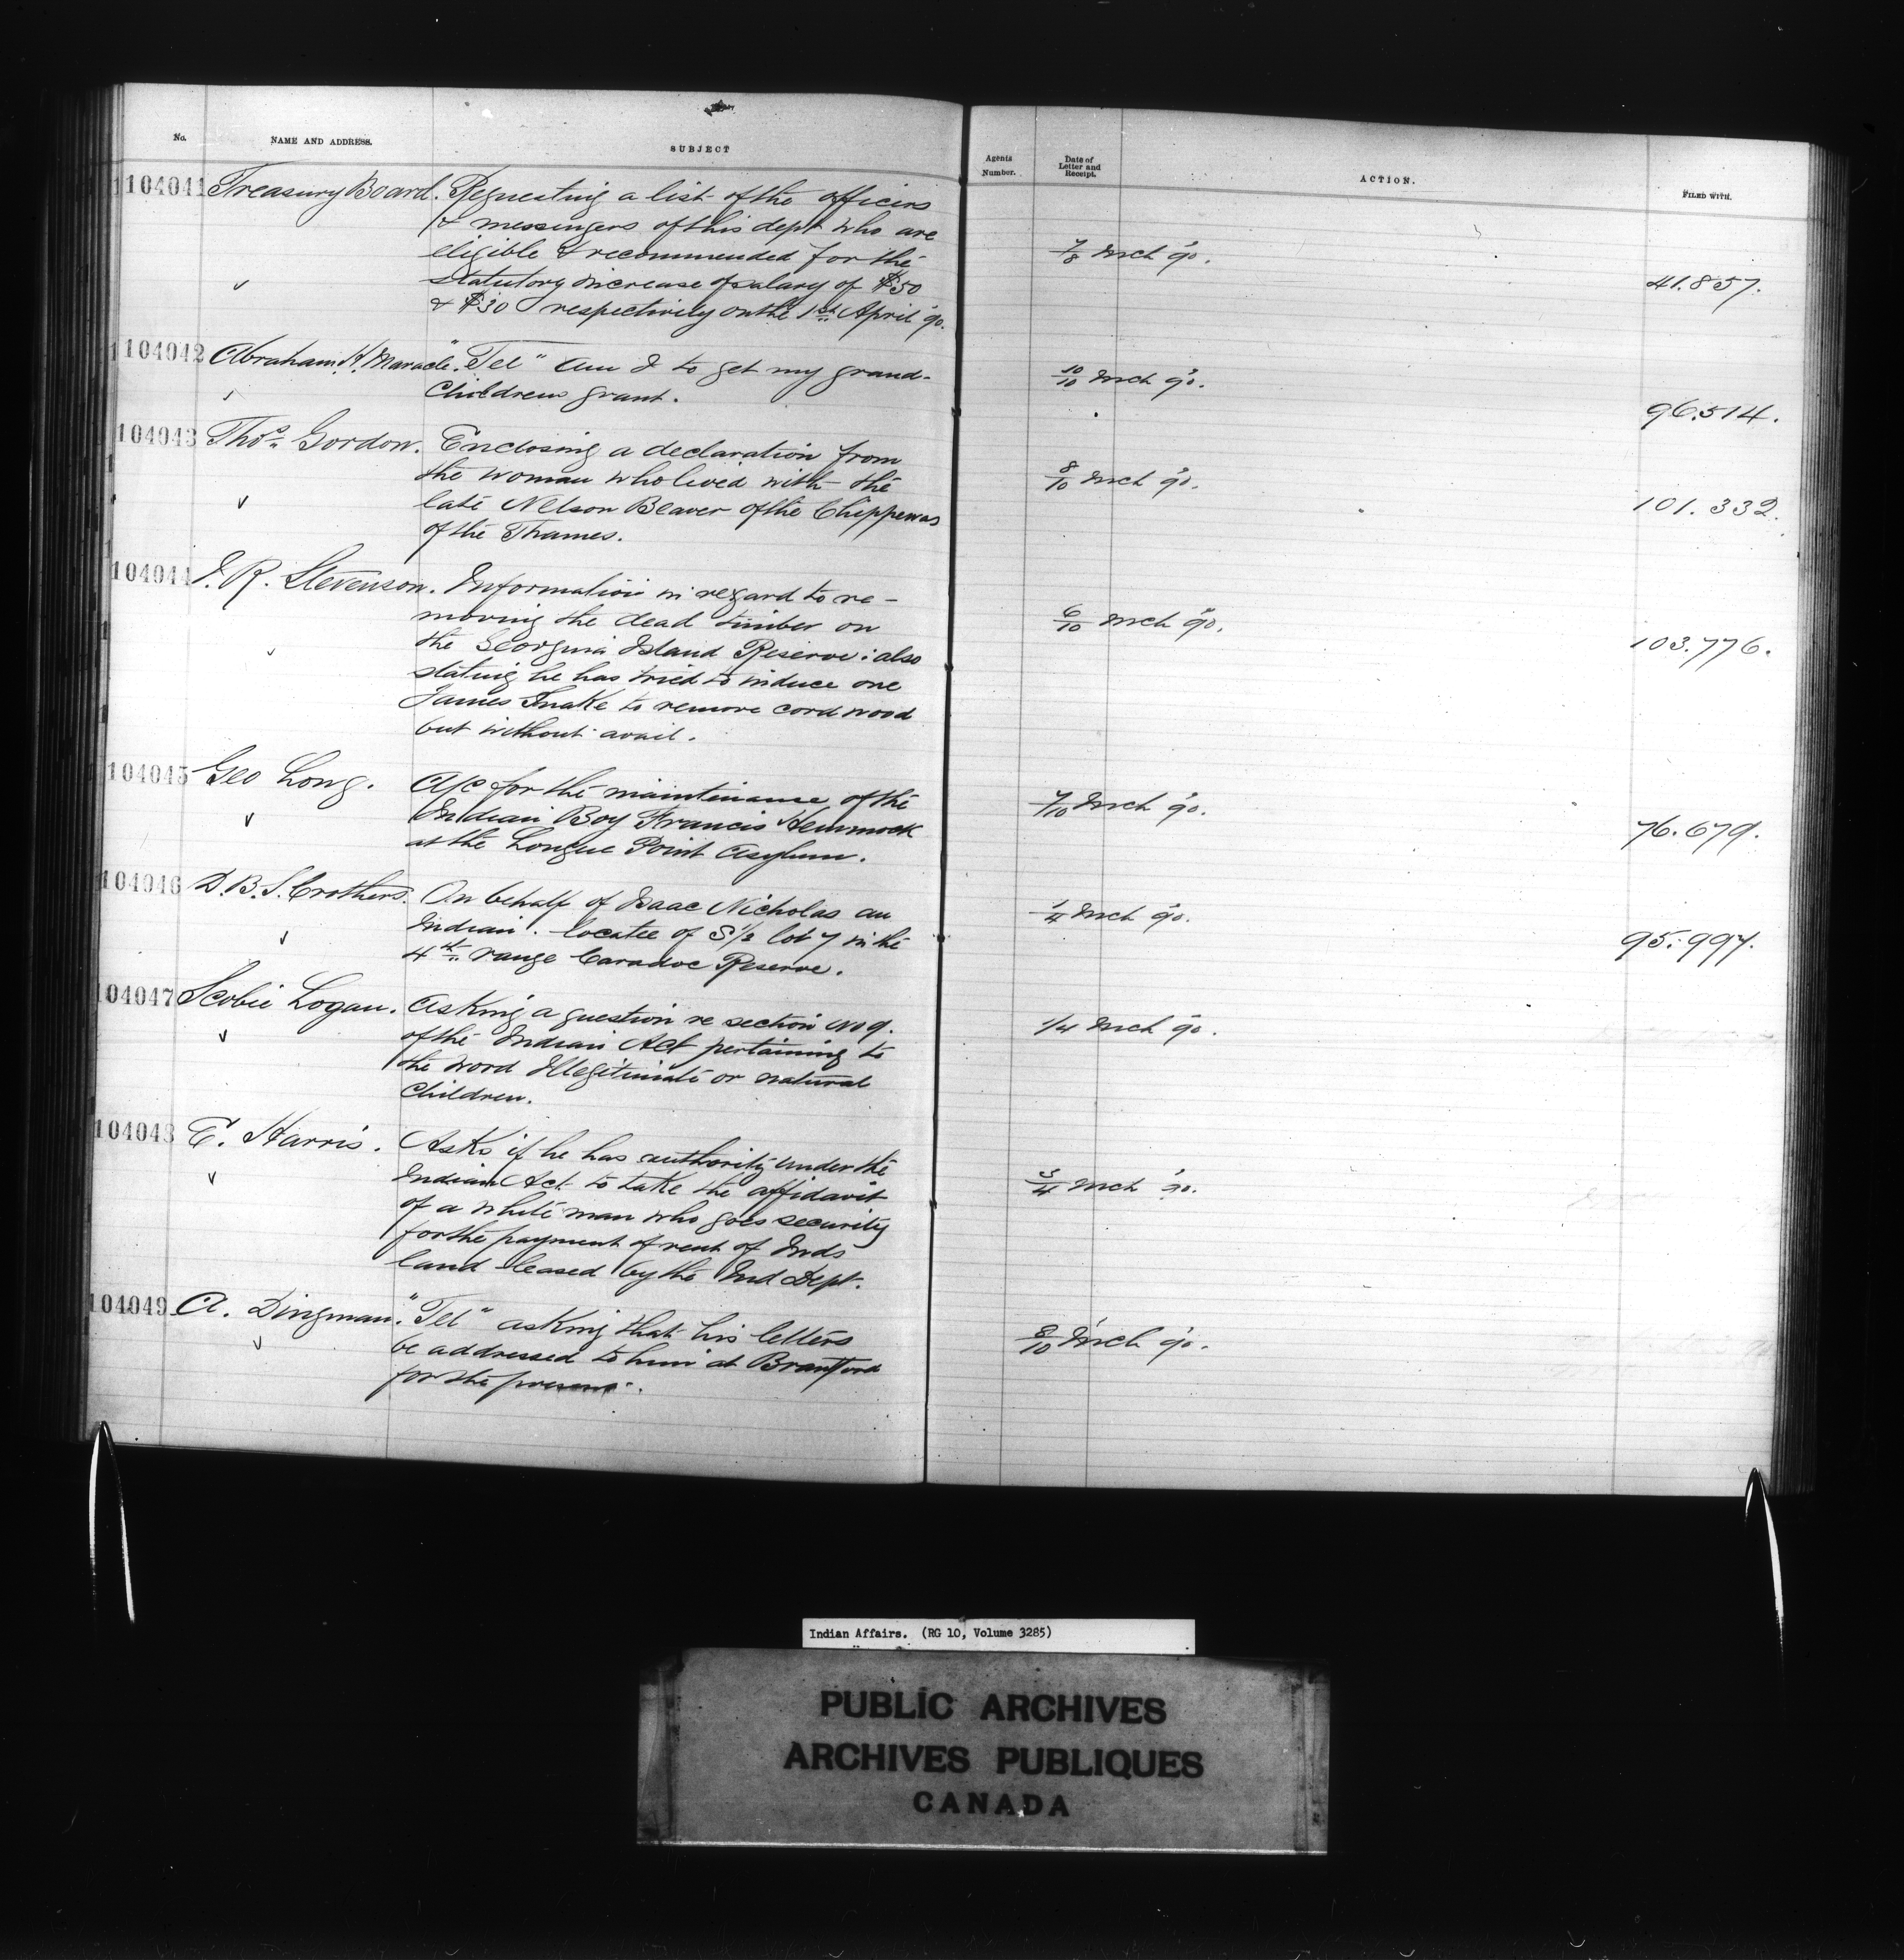 No.
NAME AND ADDRESS.
SUBJECT
Agents Number.
Date of Letter and Receipt.
ACTION.
FILED WITH.
104041 Treasury Board. Requesting a list of the officers
& messengers of this dept who are
eligible & recommended for the
statutory increase of salary of $50
& $30 respectively on the 1st April 90.
7/8 Mch 90.
41.857.
104042 Abraham H. Maracle. "Tel" Am I to get my grand-
Childrens grant.
10/10 Mch 90.
96.514.
104043 Thos Gordon. Enclosing a declaration from
the woman who lived with the
late Nelson Beaver of the Chippewas
of the Thames.
8/10 Mch 90.
101.332.
104044 J. R. Stevenson. Information in regard to re-
moving the dead timber on
the Georgina Island Reserve: also
stating he has tried to induce one
James Snake to remove cord wood
but without avail.
6/10 Mch 90.
103.776.
104045 Geo Long. A/c for the maintenance of the
Indian Boy Francis Hemmock
at the Longue Point Asylum.
7/10 Mch 90.
76.679.
104046 D.B.S. Crothers. On behalf of Isaac Nicholas an
Indian. locatee of S 1/2 lot 7 in the
4th range Caradoc Reserve.
1/4 Mch 90.
95.997.
104047 Scobie Logan. Asking a question re section No 9.
of the Indian Act pertaining to
the word Illegitimate or natural
Children.
1/4 Mch 90.
104048 E. Harris. Asks if he has authority under the
Indian Act to take the affidavit
of a white man who goes security
for the payment of rent of Inds
land leased by the Ind Dept.
3/4 Mch 90.
104049 A. Dingman. "Tel" asking that his letters
be addressed to him at Brantford
for the present.
8/10 Mch 90.
Indian Affairs. (RG 10, Volume 3285)
PUBLIC ARCHIVES
ARCHIVES PUBLIQUES
CANADA